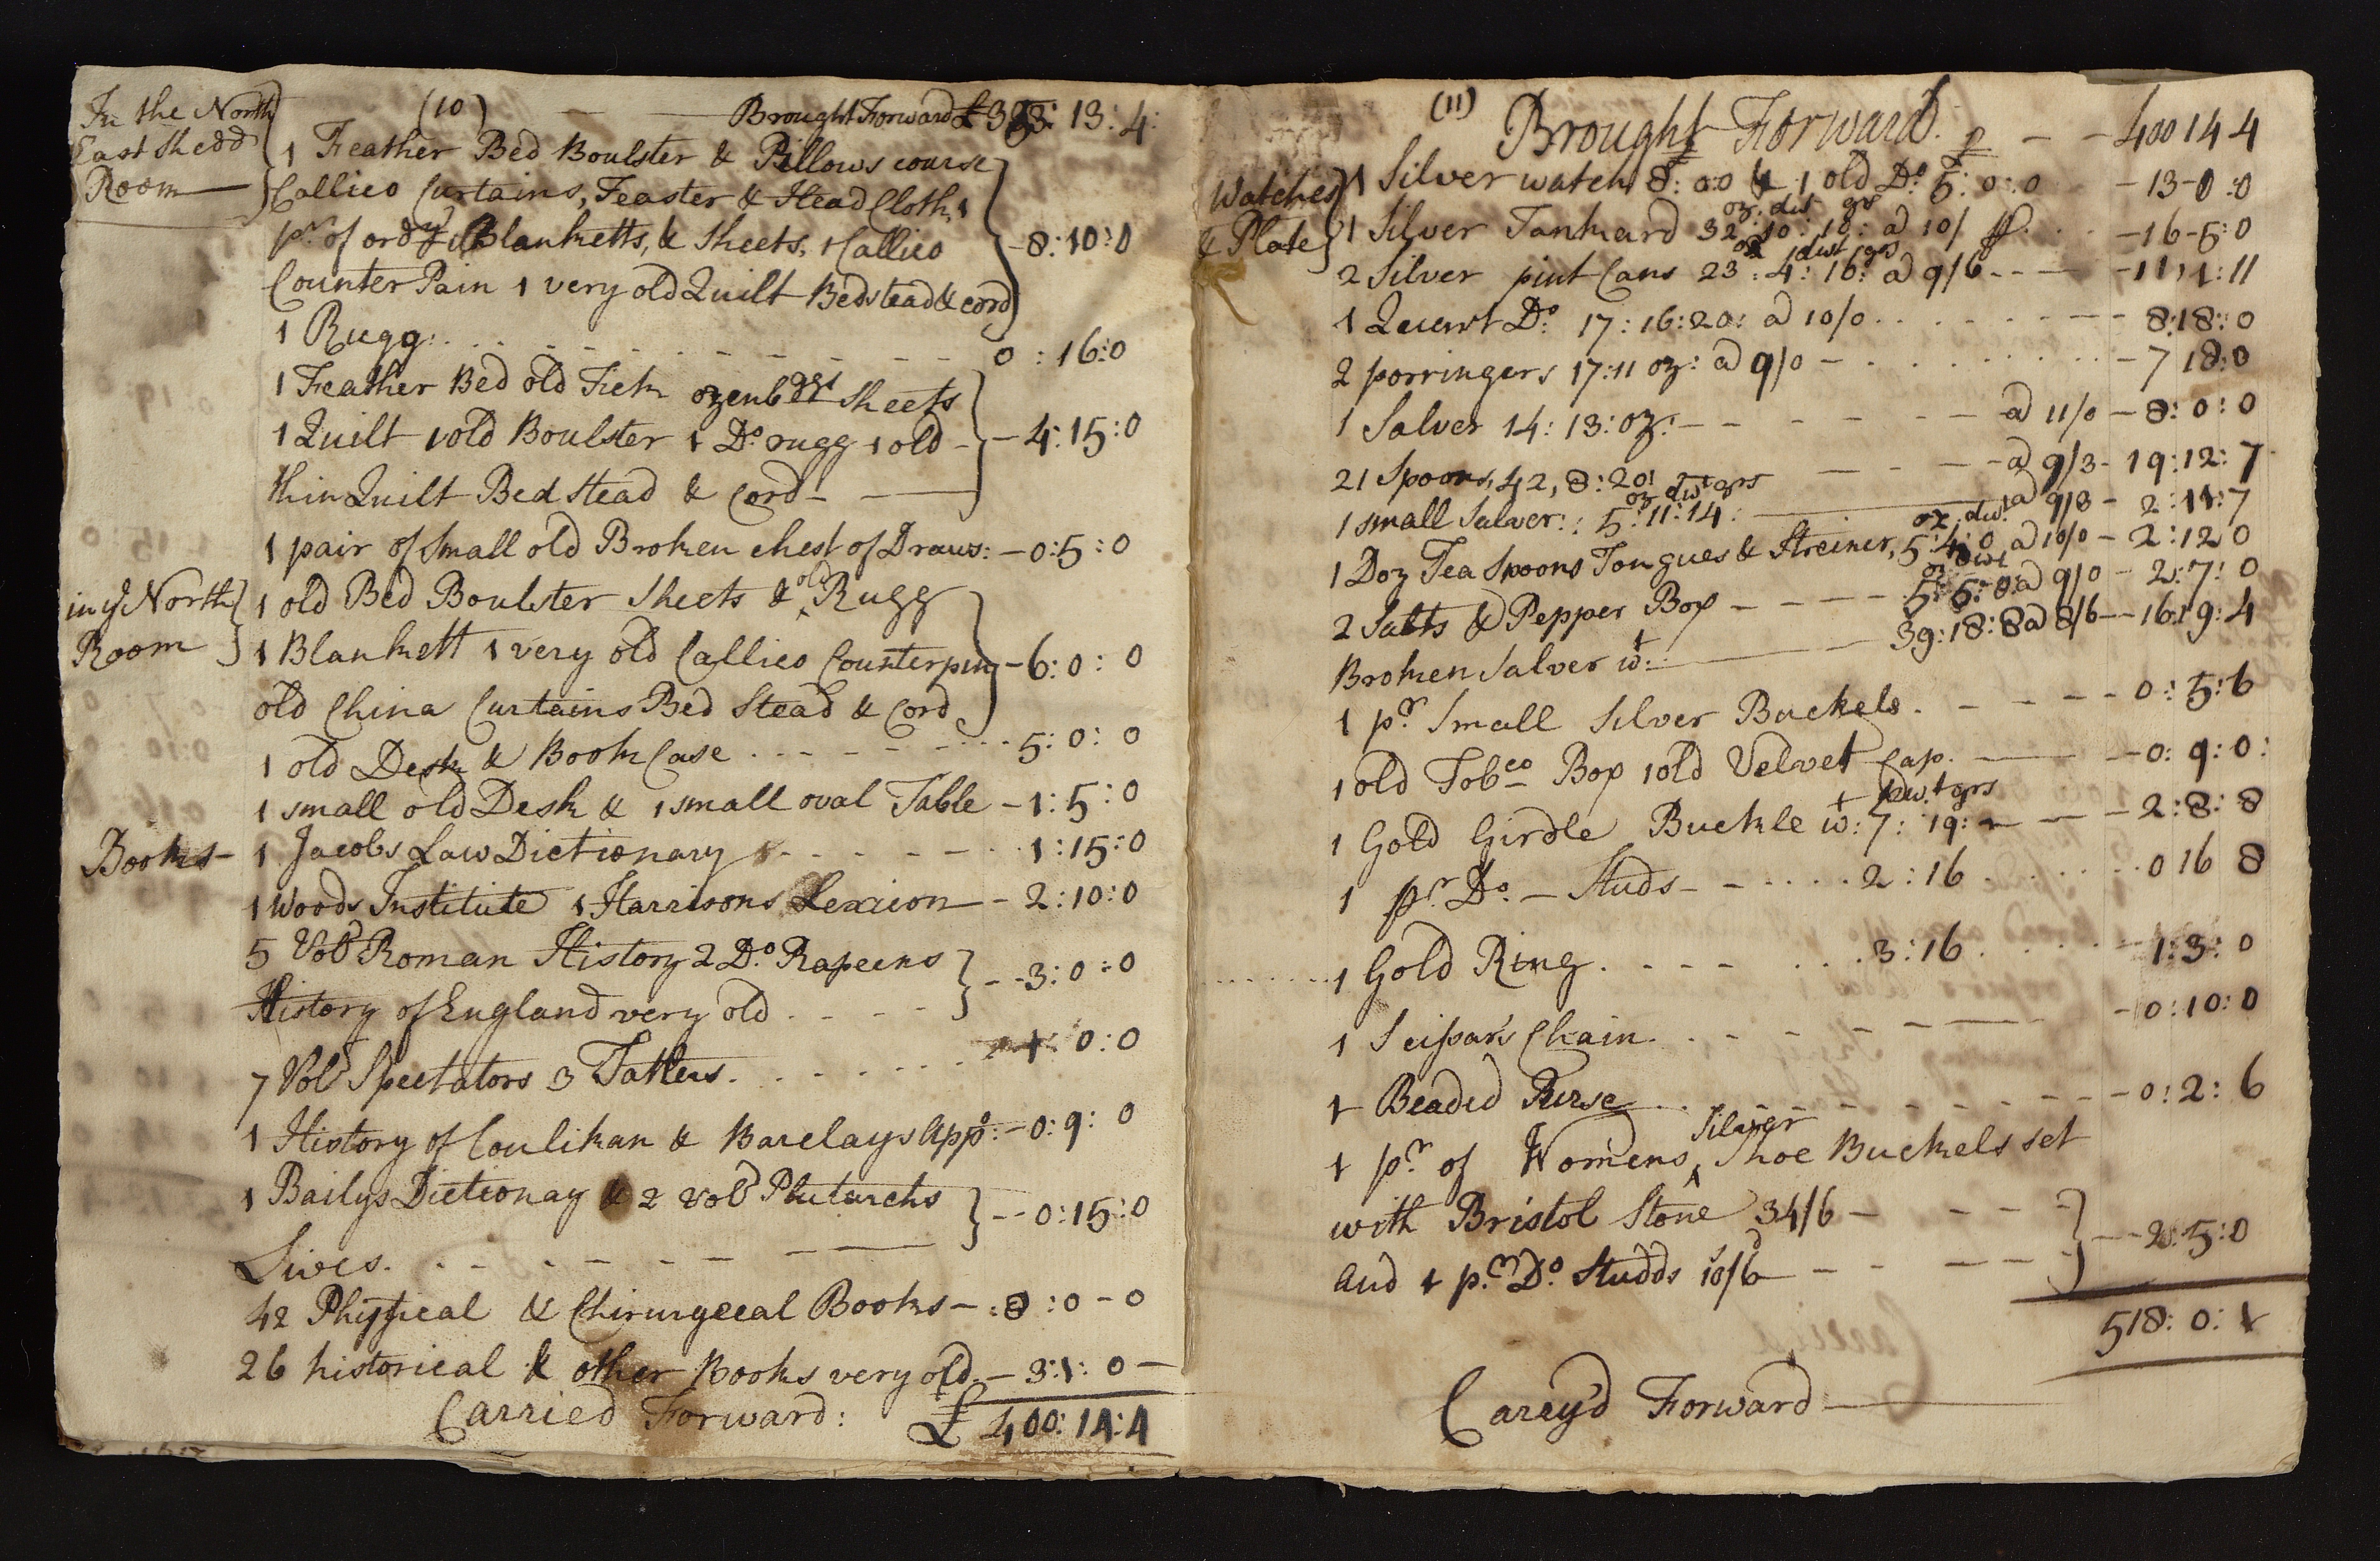 (10)
Brought Forward £ 353: 13: 4:
In the North
East Shedd
Room
1 Feather Bed Boulster & Pillows course
Callico Curtains, Teaster & Head Cloth, 1
pr. of ordy Blanketts, & Sheets, 1 Callico
Counter Pain 1 very old Quilt Bedstead & cord
-8:10:0
1 Rugg: 0:16:0
1 Feather Bed old Tick ozenbgs Sheets
1 Quilt 1 old Boulster 1 Do. rugg 1 old -
thin Quilt Bed Stead & Cord -
-4:15:0
1 pair of Small old Broken chest of Draws: -0:5:0
in ye North
Room
1 old Bed Boulster Sheets & old Rugg
1 Blankett 1 very old Callico Counterpin
old China Curtains Bed Stead & Cord
-6:0:0
1 old Desk & Book Case 5:0:0
1 small old Desk & 1 small oval Table -1:5:0
Books - 1 Jacobs Law Dictionary 1:15:0
1 Woods Institute 1 Harrisons Lexicon - 2:10:0
5 Vols Roman History 2 Do. Rapeens
History of England very old
--3:0:0
7 Vols Spectators 3 Tatlers 1:0:0
1 History of Coulikan & Barclays Appo: -0:9:0
1 Bailys Dictionay & 2 Vols Plutarchs
Lives.
--0:15:0
42 Phisical & Chirurgecal Books -:8:0-0
26 historical & other Books very old - 3:1:0 -
Carried Forward: £ 400:14:4
(11)
Brought Forward. 400 14 4
Watches
& Plate
1 Silver watch 8:0:0 & 1 old Do. 5:0:0 -13-0:0
oz: dwt grs
1 Silver Tankard 32:10:10: a 10/ -16-5:0
oz dwt grs
2 Silver pint Cans 23:4:16: a 9/6 -11,1:11
1 Quart Do. 17:16:20: a 10/0 8:18:0
2 porringers 17:11 oz: a 9/0 - 7 18:0
1 Salver 14:13:oz: - a 11/0 - 8:0:0
21 Spoons, 42,8:20: - a 9/3 - 19:12:7
oz dwt grs
1 small Salver:: 5:11:14: a 9/3 - 2:11:7
oz. dwt.
1 Doz Tea Spoons Tongues & Streiner, 5:4:0 a 10/0 - 2:12 0
oz dwt
2 Salts & Pepper Box - 5:6:0: a 9/0 - 2:7:0
Broken Salver wt: 39:18:8 a 8/6 - 16:19:4
1 pr. Small Silver Buckels 0:5:6
1 old Tobco Box 1 old Velvet Cap. -0:9:0:
dwt grs
1 Gold Girdle Buckle wt: 7:19: - 2:8:8
1 pr. Do. - Studs - 2:16 0 16 8
1 Gold Ring 3:16 1:3:0
1 Scissars Chain. -0:10:0
1 Beaded Purse -0:2:6
1 pr. of Womens Silver Shoe Buckels set
with Bristol Stone 34/6 -
and 1 pr. Do. Studds 10/6
--2:5:0
518:0:1
Carry'd Forward